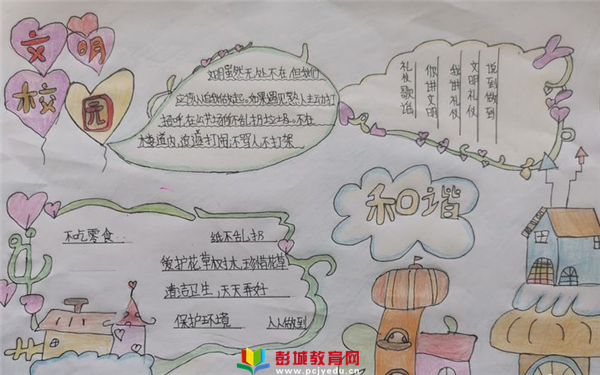 文明
校园
文明虽然无处不在,但我们
应该从自我做起。如果遇见熟人主动打
招呼,在公共场所不乱扔垃圾。不在
楼道内,追逐打闹,不骂人不打架
礼仪歌谣
你讲文明
我讲礼仪
文明礼仪
说到做到
和谐
不吃零食 纸不乱扔
爱护花草树木,珍惜花草
清洁卫生,天天弄好
保护环境 人人做到
彭城教育网
www.pcjyedu.cn